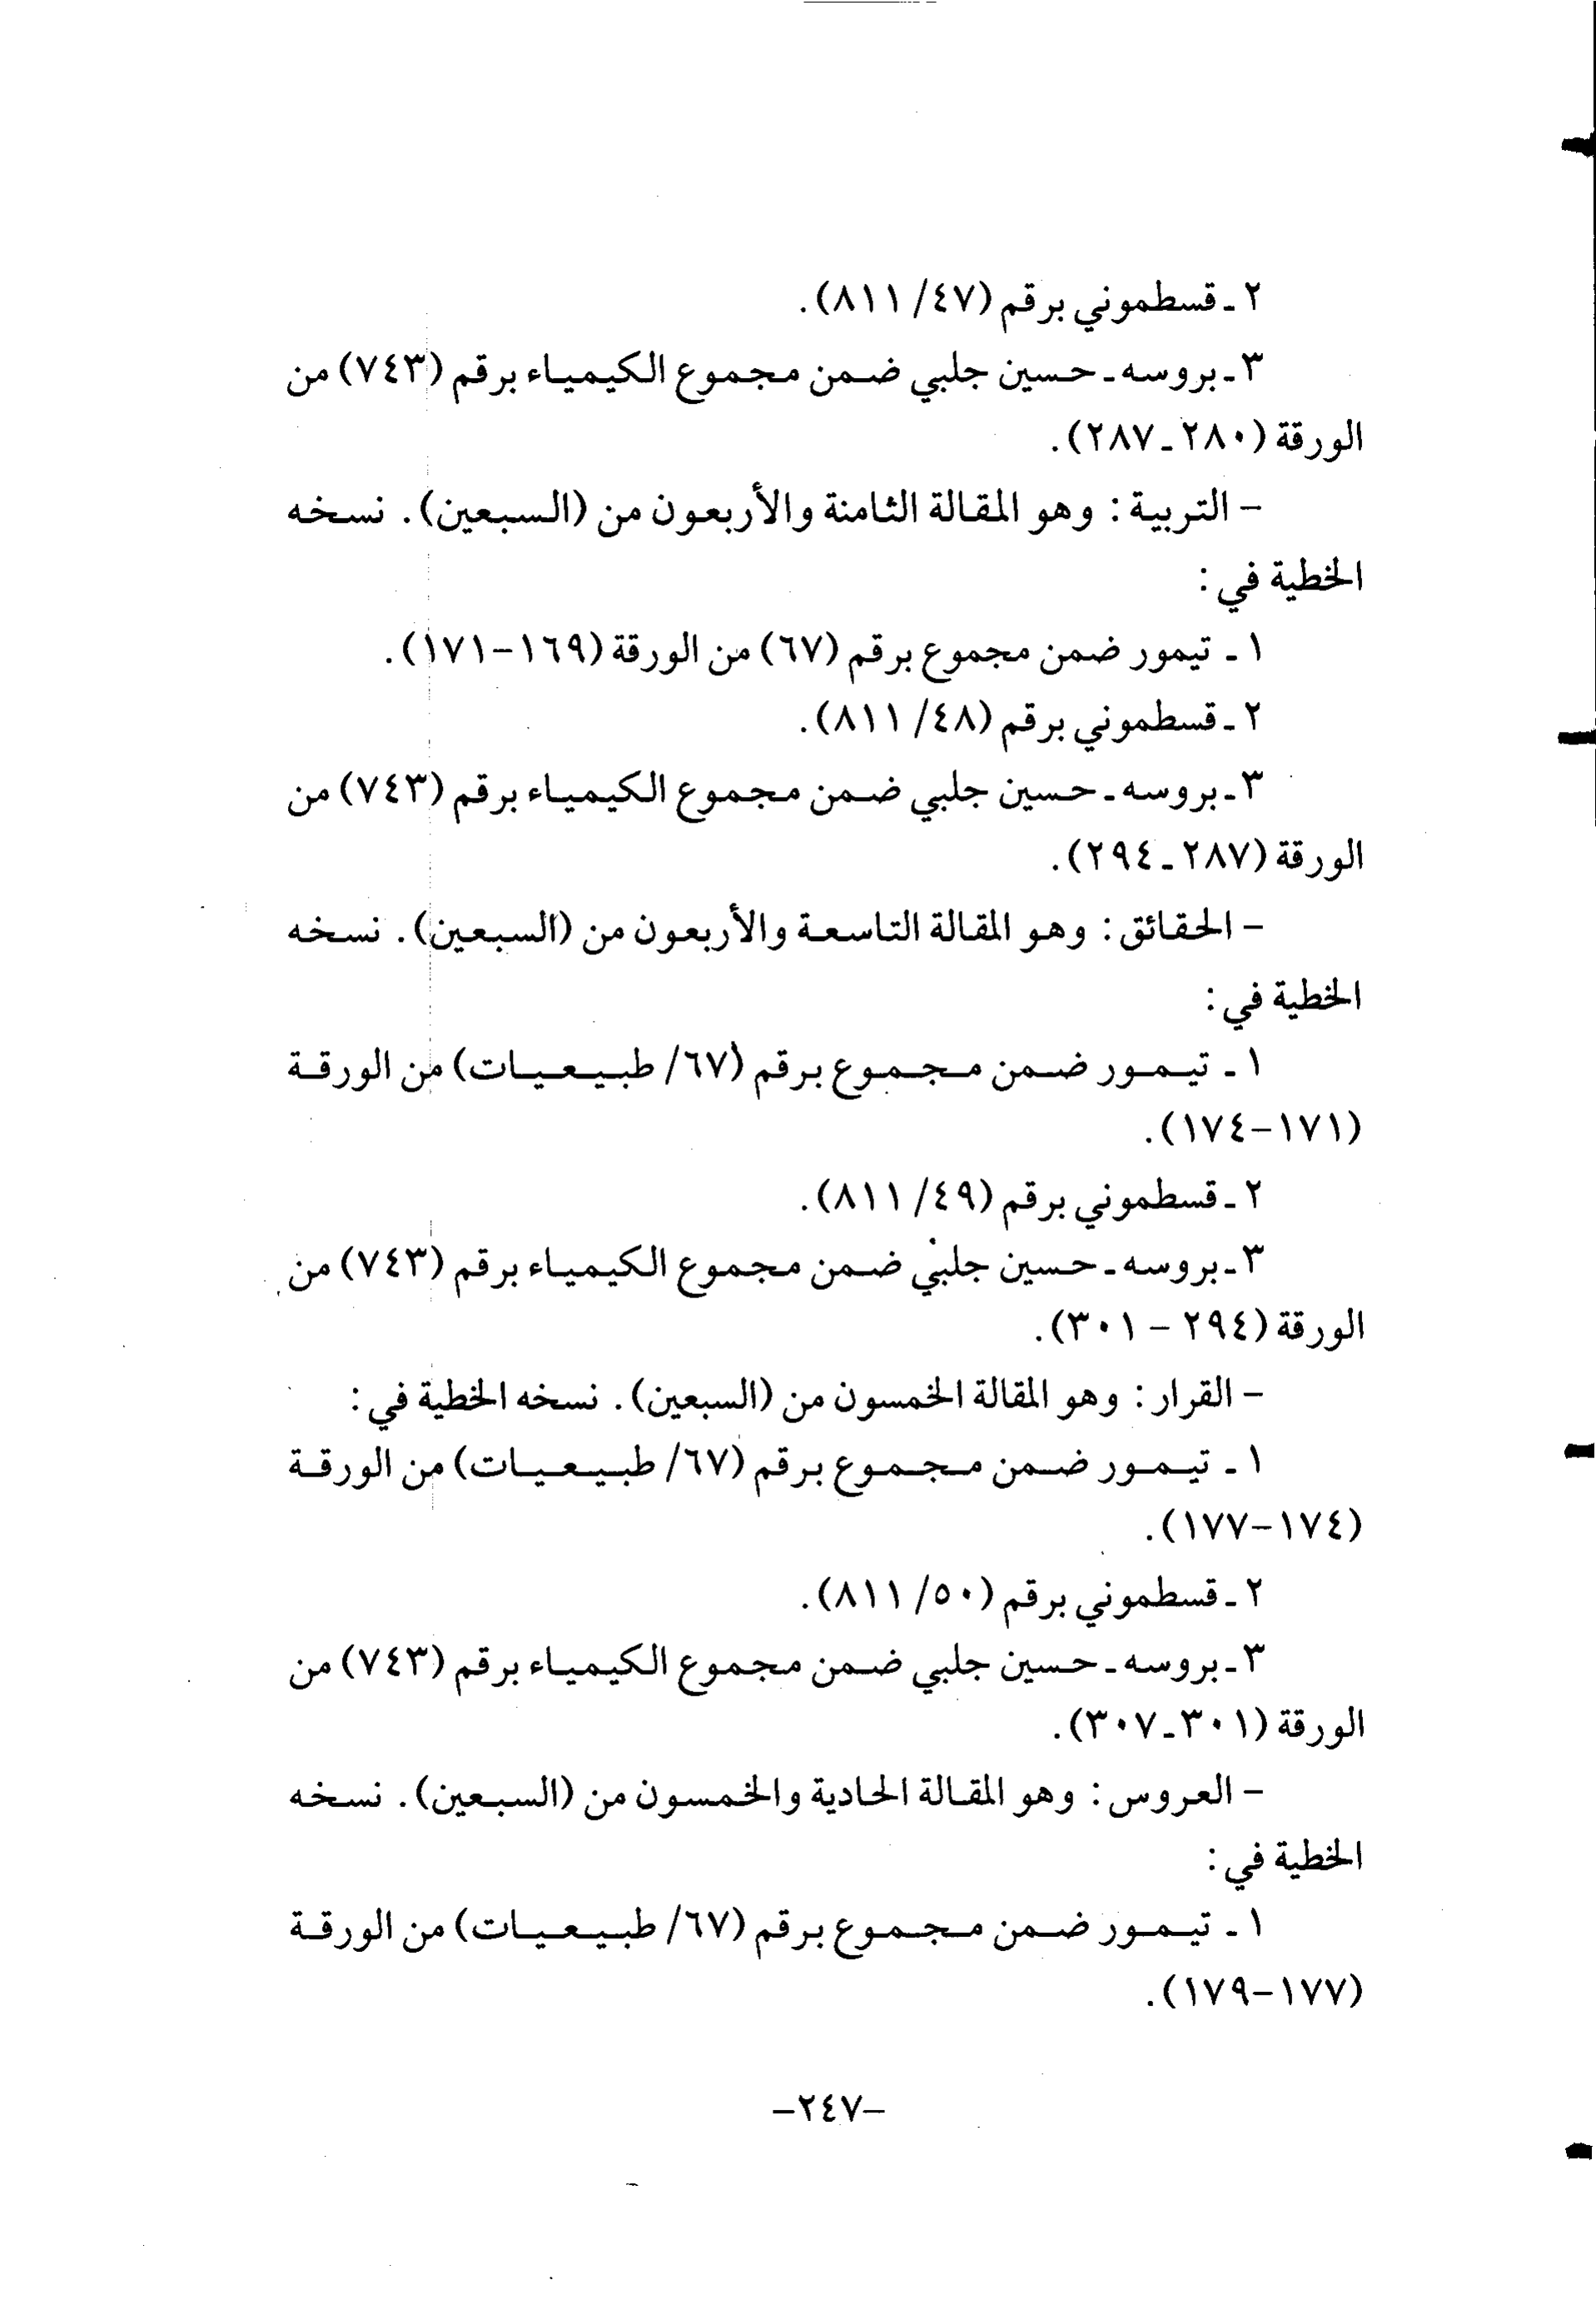 ٢ ـ قسطموني برقم (٤٧/ ٨١١).
٣ ـ بروسه ـ حسين جلبي ضمن مجموع الكيمياء برقم (٧٤٣) من
الورقة (٢٨٠ ـ ٢٨٧).
– التربية : وهو المقالة الثامنة والأربعون من (السبعين). نسخه
الخطية في :
١ ـ تيمور ضمن مجموع برقم (٦٧) من الورقة (١٦٩–١٧١).
٢ ـ قسطموني برقم (٤٨/ ٨١١).
٣ ـ بروسه ـ حسين جلبي ضمن مجموع الكيمياء برقم (٧٤٣) من
الورقة (٢٨٧ ـ ٢٩٤).
– الحقائق : وهو المقالة التاسعة والأربعون من (السبعين). نسخه
الخطية في :
١ ـ تيمور ضمن مجموع برقم (٦٧/ طبيعيات) من الورقة
(١٧١–١٧٤).
٢ ـ قسطموني برقم (٤٩/ ٨١١).
٣ ـ بروسه ـ حسين جلبي ضمن مجموع الكيمياء برقم (٧٤٣) من
الورقة (٢٩٤ – ٣٠١).
– القرار : وهو المقالة الخمسون من (السبعين). نسخه الخطية في :
١ ـ تيمور ضمن مجموع برقم (٦٧/ طبيعيات) من الورقة
(١٧٤–١٧٧).
٢ ـ قسطموني برقم (٥٠/ ٨١١).
٣ ـ بروسه ـ حسين جلبي ضمن مجموع الكيمياء برقم (٧٤٣) من
الورقة (٣٠١ ـ ٣٠٧).
– العروس : وهو المقالة الحادية والخمسون من (السبعين). نسخه
الخطية في :
١ ـ تيمور ضمن مجموع برقم (٦٧/ طبيعيات) من الورقة
(١٧٧–١٧٩).
–٢٤٧–